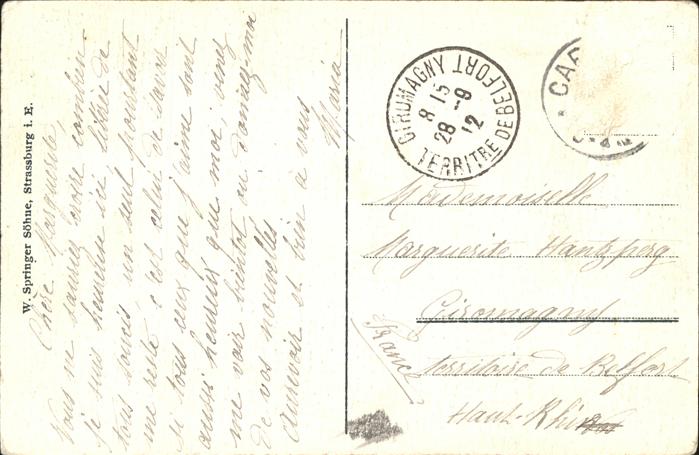 W. Springer Söhne, Strassburg i. E.
Chère Marguerite,
Vous ne sauriez croire combien
je suis heureuse ici libérée de
tous soucis un seul pourtant
me reste c'est celui de savoir
si tous ceux que j'aime sont
aussi heureux que moi, venez
me voir bientôt ou donnez-moi
de vos nouvelles
Aurevoir et bien à vous
Maria
GIROMAGNY
TERRITRE DE BELFORT
8 15
28 -9
12
CAR
Mademoiselle
Marguerite Hantzperg
Giromagny
territoire de Belfort
Haut-Rhin
France